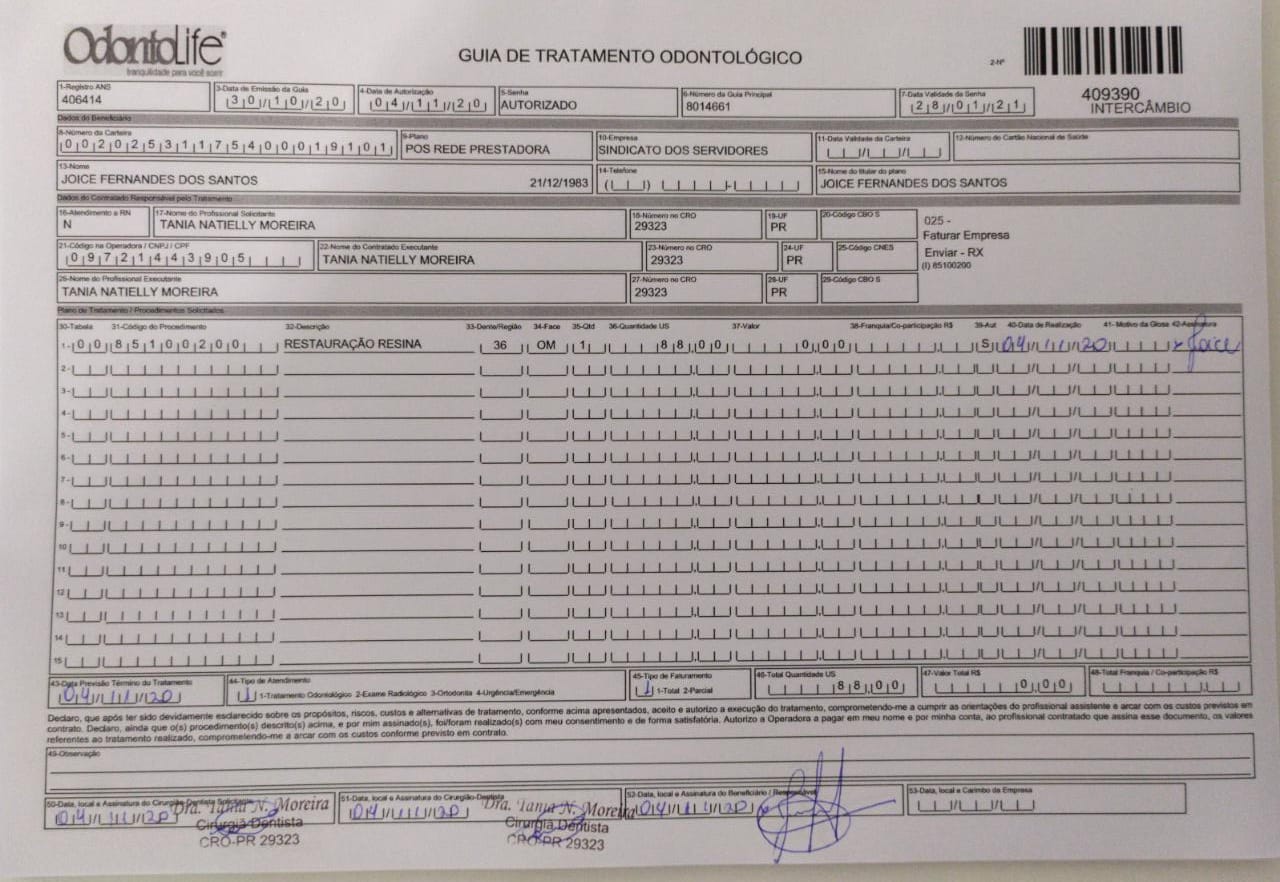 OdontoLife
tranquilidade para você sorrir
GUIA DE TRATAMENTO ODONTOLÓGICO
2-Nº
409390
INTERCÂMBIO
1-Registro ANS
406414
3-Data de Emissão da Guia
30/10/20
4-Data de Autorização
04/11/20
5-Senha
AUTORIZADO
6-Número da Guia Principal
8014661
7-Data Validade da Senha
28/01/21
Dados do Beneficiário
8-Número da Carteira
00202531175400019101
9-Plano
POS REDE PRESTADORA
10-Empresa
SINDICATO DOS SERVIDORES
11-Data Validade da Carteira
12-Número do Cartão Nacional de Saúde
13-Nome
JOICE FERNANDES DOS SANTOS 21/12/1983
14-Telefone
15-Nome do titular do plano
JOICE FERNANDES DOS SANTOS
Dados do Contratado Responsável pelo Tratamento
16-Atendimento a RN
N
17-Nome do Profissional Solicitante
TANIA NATIELLY MOREIRA
18-Número no CRO
29323
19-UF
PR
20-Código CBO S
025 -
Faturar Empresa
Enviar - RX
(I) 85100200
21-Código na Operadora / CNPJ / CPF
09721443905
22-Nome do Contratado Executante
TANIA NATIELLY MOREIRA
23-Número no CRO
29323
24-UF
PR
25-Código CNES
26-Nome do Profissional Executante
TANIA NATIELLY MOREIRA
27-Número no CRO
29323
28-UF
PR
29-Código CBO S
Plano de Tratamento / Procedimentos Solicitados
30-Tabela 31-Código do Procedimento 32-Descrição 33-Dente/Região 34-Face 35-Qtd 36-Quantidade US 37-Valor 38-Franquia/Co-participação R$ 39-Aut 40-Data de Realização 41- Motivo da Glosa 42-Assinatura
1- 00 85100200 RESTAURAÇÃO RESINA 36 OM 1 88,00 0,00 S 04/11/20 x Joice
2-
3-
4-
5-
6-
7-
8-
9-
10
11
12
13
14
15
43-Data Previsão Término do Tratamento
04/11/20
44-Tipo de Atendimento
1 1-Tratamento Odontológico 2-Exame Radiológico 3-Ortodontia 4-Urgência/Emergência
45-Tipo de Faturamento
1 1-Total 2-Parcial
46-Total Quantidade US
88,00
47-Valor Total R$
0,00
48-Total Franquia / Co-participação R$
Declaro, que após ter sido devidamente esclarecido sobre os propósitos, riscos, custos e alternativas de tratamento, conforme acima apresentados, aceito e autorizo a execução do tratamento, comprometendo-me a cumprir as orientações do profissional assistente e arcar com os custos previstos em
contrato. Declaro, ainda que o(s) procedimento(s) descrito(s) acima, e por mim assinado(s), foi/foram realizado(s) com meu consentimento e de forma satisfatória. Autorizo a Operadora a pagar em meu nome e por minha conta, ao profissional contratado que assina esse documento, os valores
referentes ao tratamento realizado, comprometendo-me a arcar com os custos conforme previsto em contrato.
49-Observação
50-Data, local e Assinatura do Cirurgião-Dentista Solicitante
04/11/20
Dra. Tania N. Moreira
Cirurgiã Dentista
CRO-PR 29323
51-Data, local e Assinatura do Cirurgião-Dentista
04/11/20
Dra. Tania N. Moreira
Cirurgiã Dentista
CRO-PR 29323
52-Data, local e Assinatura do Beneficiário / Responsável
04/11/20
53-Data, local e Carimbo da Empresa